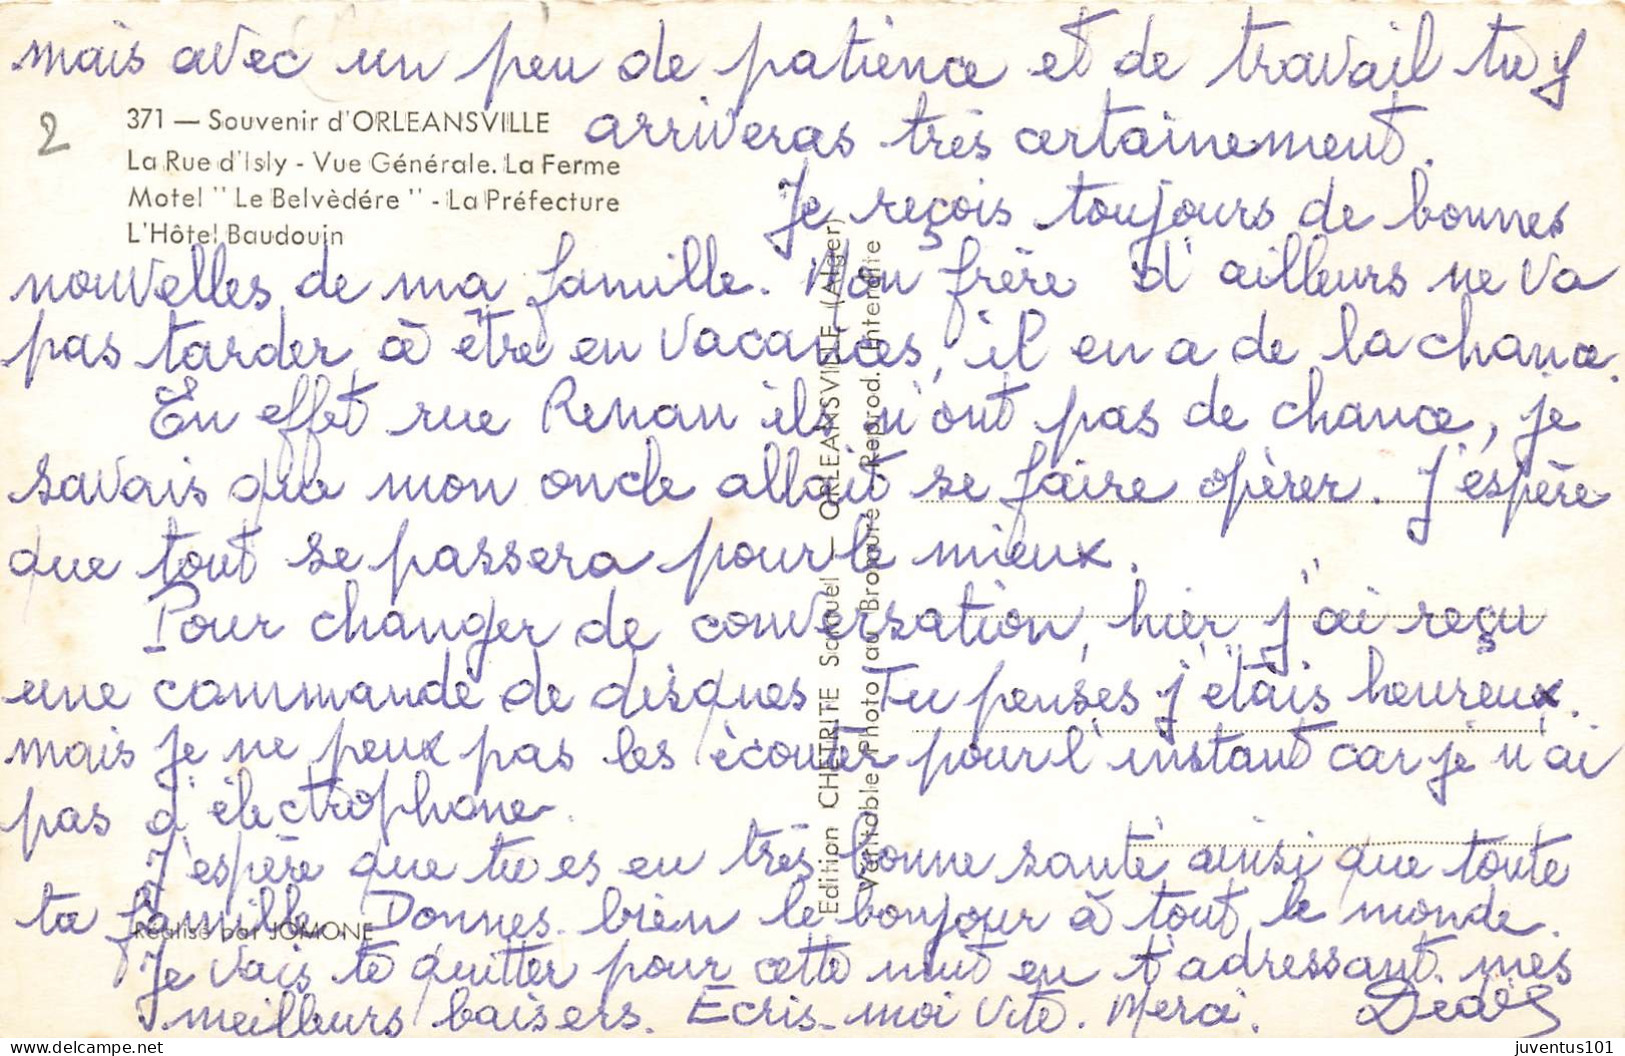 mais avec un peu de patience et de travail tu y
arriveras très certainement.
2
371 — Souvenir d'ORLEANSVILLE
La Rue d'Isly - Vue Générale. La Ferme
Motel " Le Belvèdére " - La Préfecture
L'Hôtel Baudouin
Je reçois toujours de bonnes
nouvelles de ma famille. Mon frère d'ailleurs ne va
pas tarder à être en vacances, il en a de la chance.
En effet rue Renan ils n'ont pas de chance, je
savais que mon oncle allait se faire opérer. J'espère
que tout se passera pour le mieux.
Pour changer de conversation, hier, j'ai reçu
une commande de disques. Tu penses j'étais heureux.
mais je ne peux pas les écouter pour l'instant car je n'ai
pas d'électrophone.
J'espère que tu es en très bonne santé ainsi que toute
ta famille. Donnes bien le bonjour à tout le monde.
Je vais te quitter pour cette nuit en t'adressant mes
meilleurs baisers. Ecris-moi vite. Merci.
Réalisé par JOMONE
Edition CHETRITE Samuel — ORLEANSVILLE (Alger)
Véritable Photo au Bromure Reprod. Interdite
juventus101